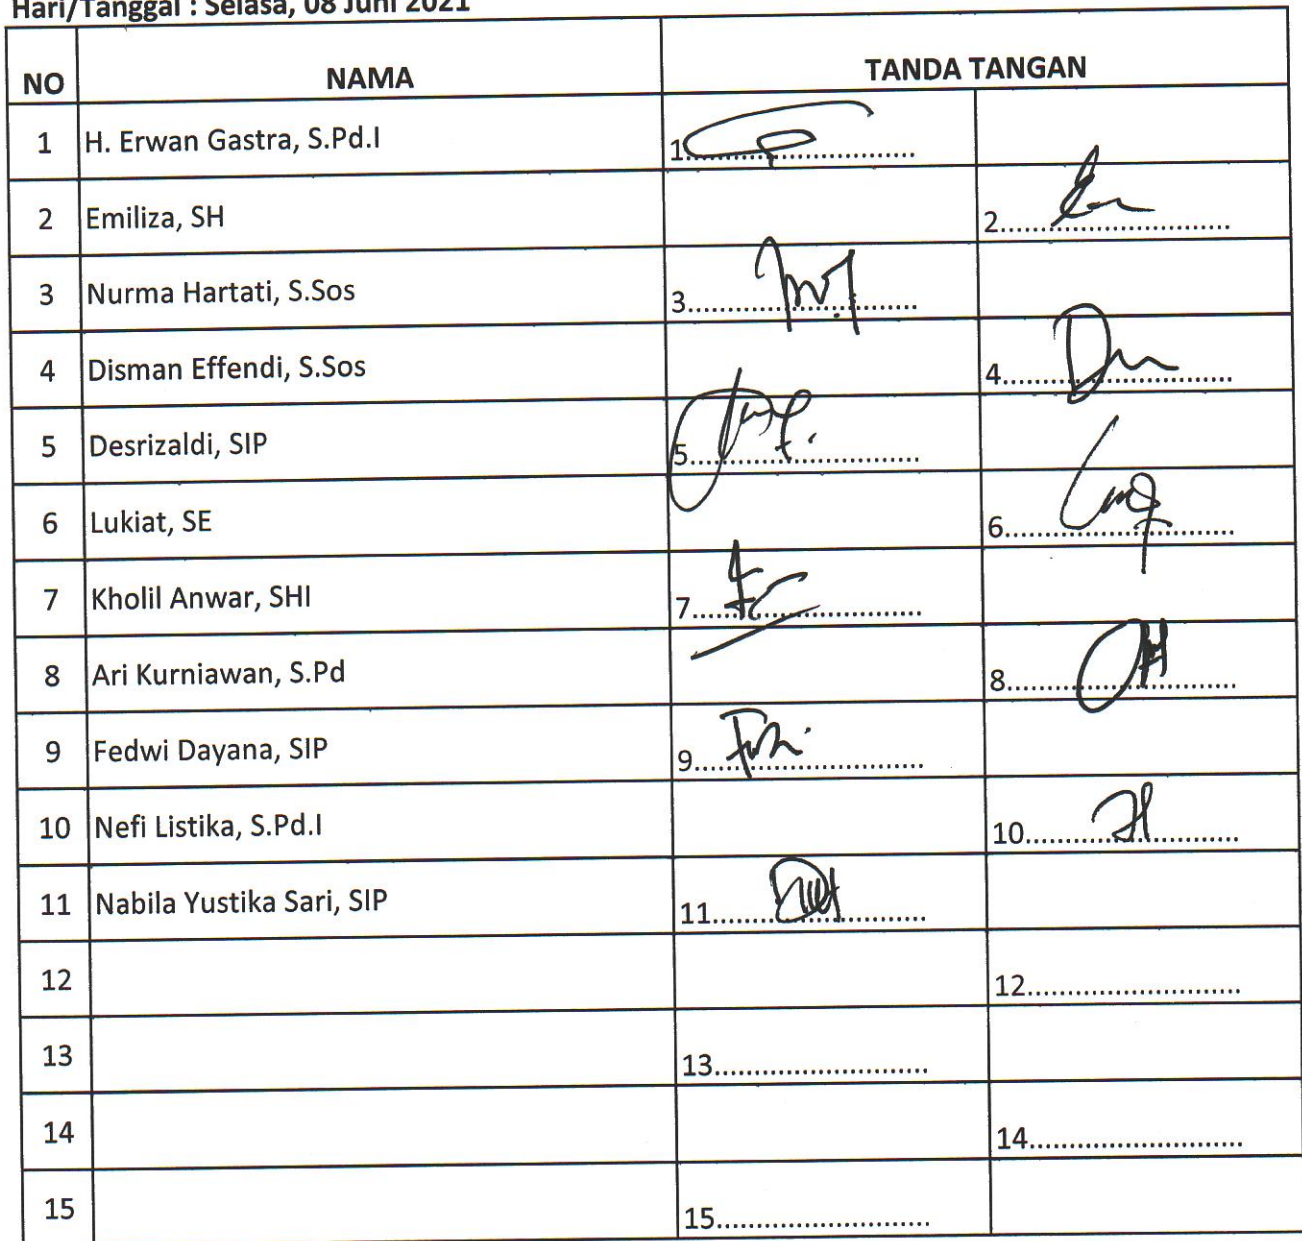 Hari/Tanggal : Selasa, 08 Juni 2021
NO NAMA TANDA TANGAN
1 H. Erwan Gastra, S.Pd.I 1..............................
2 Emiliza, SH 2..............................
3 Nurma Hartati, S.Sos 3..............................
4 Disman Effendi, S.Sos 4..............................
5 Desrizaldi, SIP 5..............................
6 Lukiat, SE 6..............................
7 Kholil Anwar, SHI 7..............................
8 Ari Kurniawan, S.Pd 8..............................
9 Fedwi Dayana, SIP 9..............................
10 Nefi Listika, S.Pd.I 10............................
11 Nabila Yustika Sari, SIP 11............................
12 12............................
13 13............................
14 14............................
15 15............................